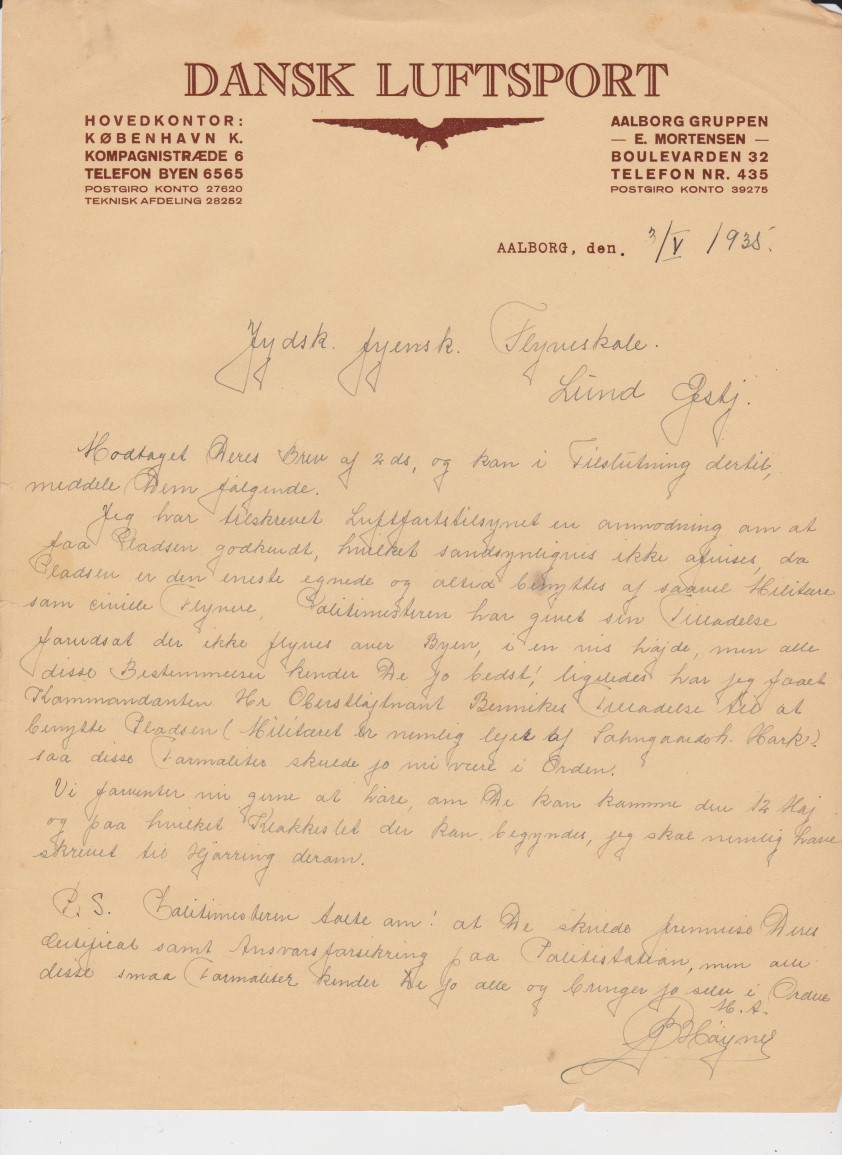 DANSK LUFTSPORT
HOVEDKONTOR:
KØBENHAVN K.
KOMPAGNISTRÆDE 6
TELEFON BYEN 6565
POSTGIRO KONTO 27620
TEKNISK AFDELING 28252
AALBORG GRUPPEN
— E. MORTENSEN —
BOULEVARDEN 32
TELEFON NR. 435
POSTGIRO KONTO 39275
AALBORG, den. 3/V 1935.
Jydsk. fyensk. Flyveskole.
Lund
Modtaget Deres Brev af 2 ds, og kan i Tilslutning dertil,
meddele Dem følgende.
Jeg har tilskrevet Luftfartstilsynet en anmodning om at
faa Pladsen godkendt, hvilket sandsynligvis ikke afvises, da
Pladsen er den eneste egnede og altid benyttes af saavel Militære
som civile Flyvere, Politimesteren har givet sin Tilladelse
forudsat der ikke flyves over Byen, i en vis højde, men alle
disse Bestemmelser kender De jo bedst!, ligeledes har jeg faaet
Kommandanten Hr Oberstløjtnant Bennikes Tilladelse til at
benytte Pladsen (Militæret er nemlig lejer af
saa disse Formaliter skulde jo nu være i Orden.
Vi forventer nu gerne at høre, om De kan komme den 12 Maj
og paa hvilket Klokkeslet der kan begyndes, jeg skal nemlig have
skrevet til Hjørring derom.
P.S. Politimesteren talte om! at De skulde fremvise Deres
Certifical samt Ansvarsforsikring paa Politistation, men alle
disse smaa Formaliter kender De jo alle og bringer jo selv i Orden